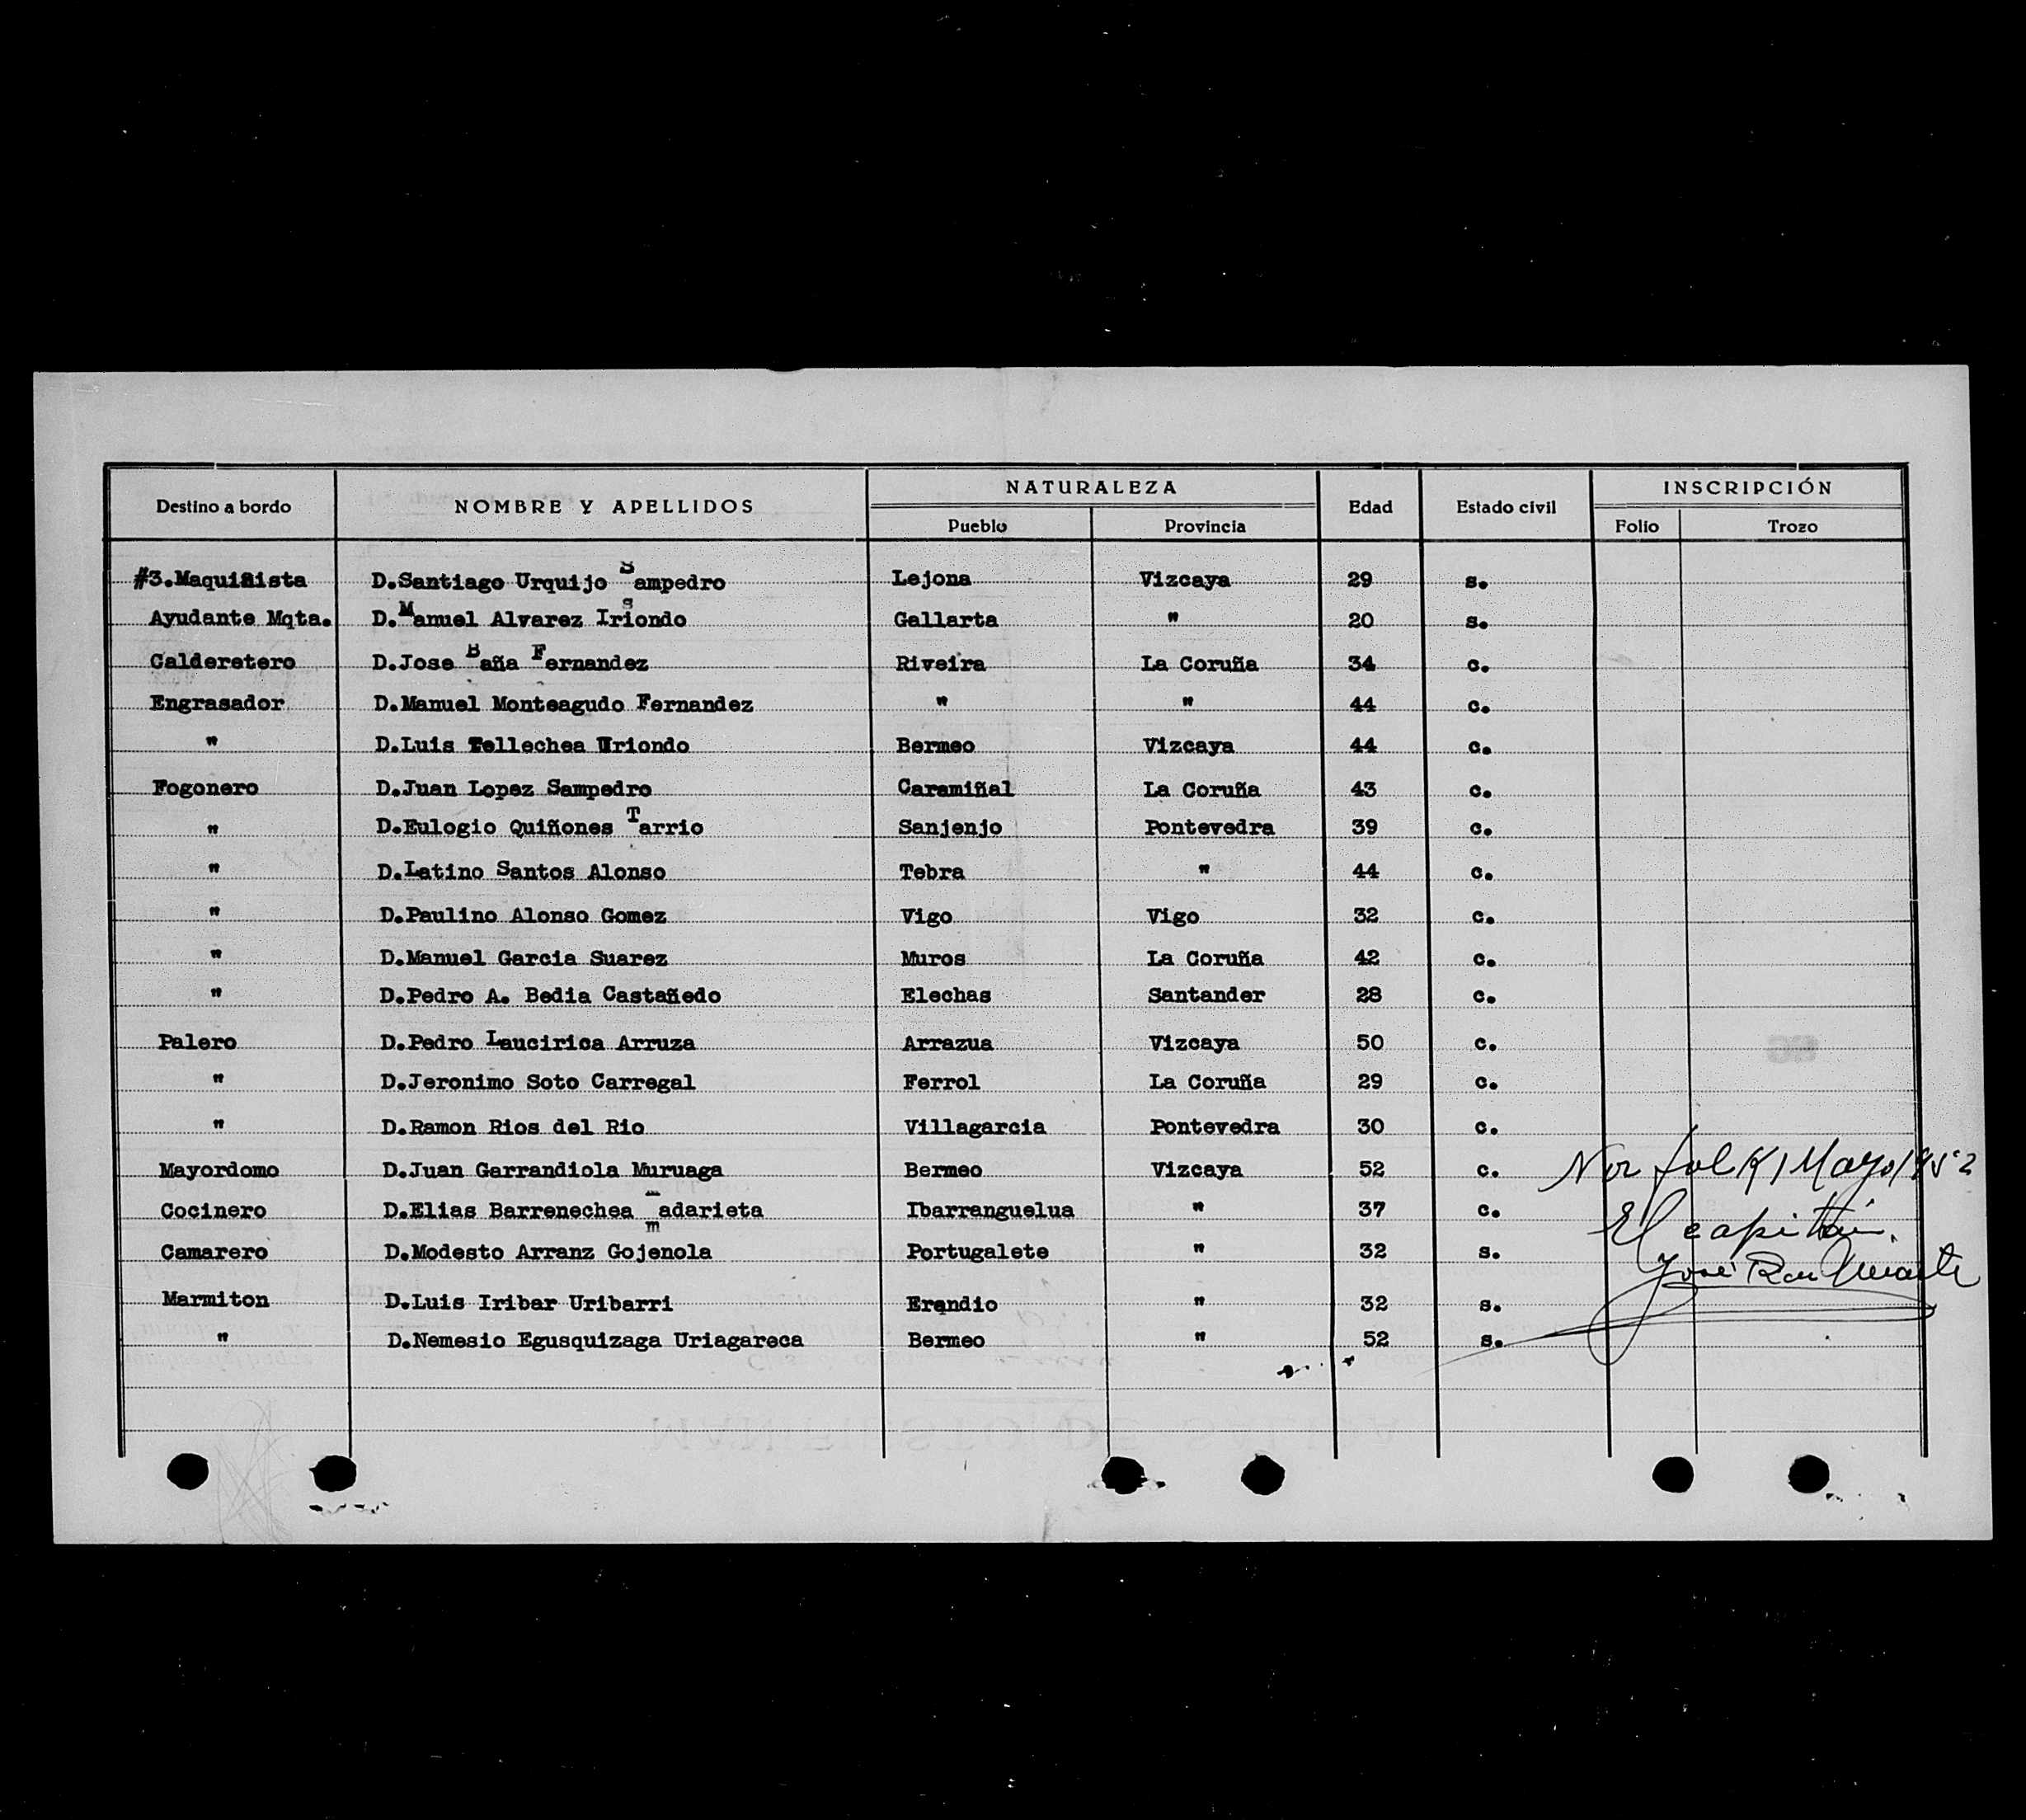 Destino a bordo NOMBRE Y APELLIDOS NATURALEZA Edad Estado civil INSCRIPCIÓN
Pueblo Provincia Folio Trozo
#3.Maquinista D.Santiago Urquijo Sampedro Lejona Vizcaya 29 s.
Ayudante Mqta. D.Manuel Alvarez Iriondo Gallarta " 20 s.
Calderetero D.Jose Baña Fernandez Riveira La Coruña 34 c.
Engrasador D.Manuel Monteagudo Fernandez " " 44 c.
" D.Luis Tellechea Uriondo Bermeo Vizcaya 44 c.
Fogonero D.Juan Lopez Sampedro Caramiñal La Coruña 43 c.
" D.Eulogio Quiñones Tarrio Sanjenjo Pontevedra 39 c.
" D.Latino Santos Alonso Tebra " 44 c.
" D.Paulino Alonso Gomez Vigo Vigo 32 c.
" D.Manuel Garcia Suarez Muros La Coruña 42 c.
" D.Pedro A. Bedia Castañedo Elechas Santander 28 c.
Palero D.Pedro Laucirica Arruza Arrazua Vizcaya 50 c.
" D.Jeronimo Soto Carregal Ferrol La Coruña 29 c.
" D.Ramon Rios del Rio Villagarcia Pontevedra 30 c.
Mayordomo D.Juan Garrandiola Muruaga Bermeo Vizcaya 52 c. Norfolk 1 Mayo 1952
Cocinero D.Elias Barrenechea madarieta Ibarranguelua " 37 c. El capitán.
Camarero D.Modesto Arranz Gojenola Portugalete " 32 s. José Ron
Marmiton D.Luis Iribar Uribarri Erandio " 32 s.
" D.Nemesio Egusquizaga Uriagareca Bermeo " 52 s.